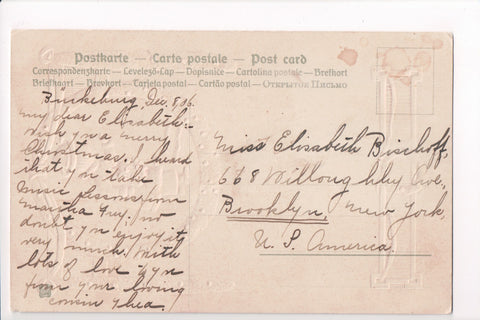 Postkarte — Carte postale — Post card
Correspondenzkarte — Levelező-Lap — Dopisnice — Cartolina postale — Brefkort
Briefkaart — Brevkort — Tarjeta postal — Cartão postal — Открытое письмо
Bückeburg, Dec. 8 06.
My dear Elisabeth:-
Wish you a merry
Christmas. I heard
that you take
music lessons from
Martha Frey. no
doubt you enjoy it
very much. With
lots of love to you
from your loving
cousin Thea.
Miss Elisabeth Bischoff,
668 Willoughby Ave.,
Brooklyn, New York,
U. S. America